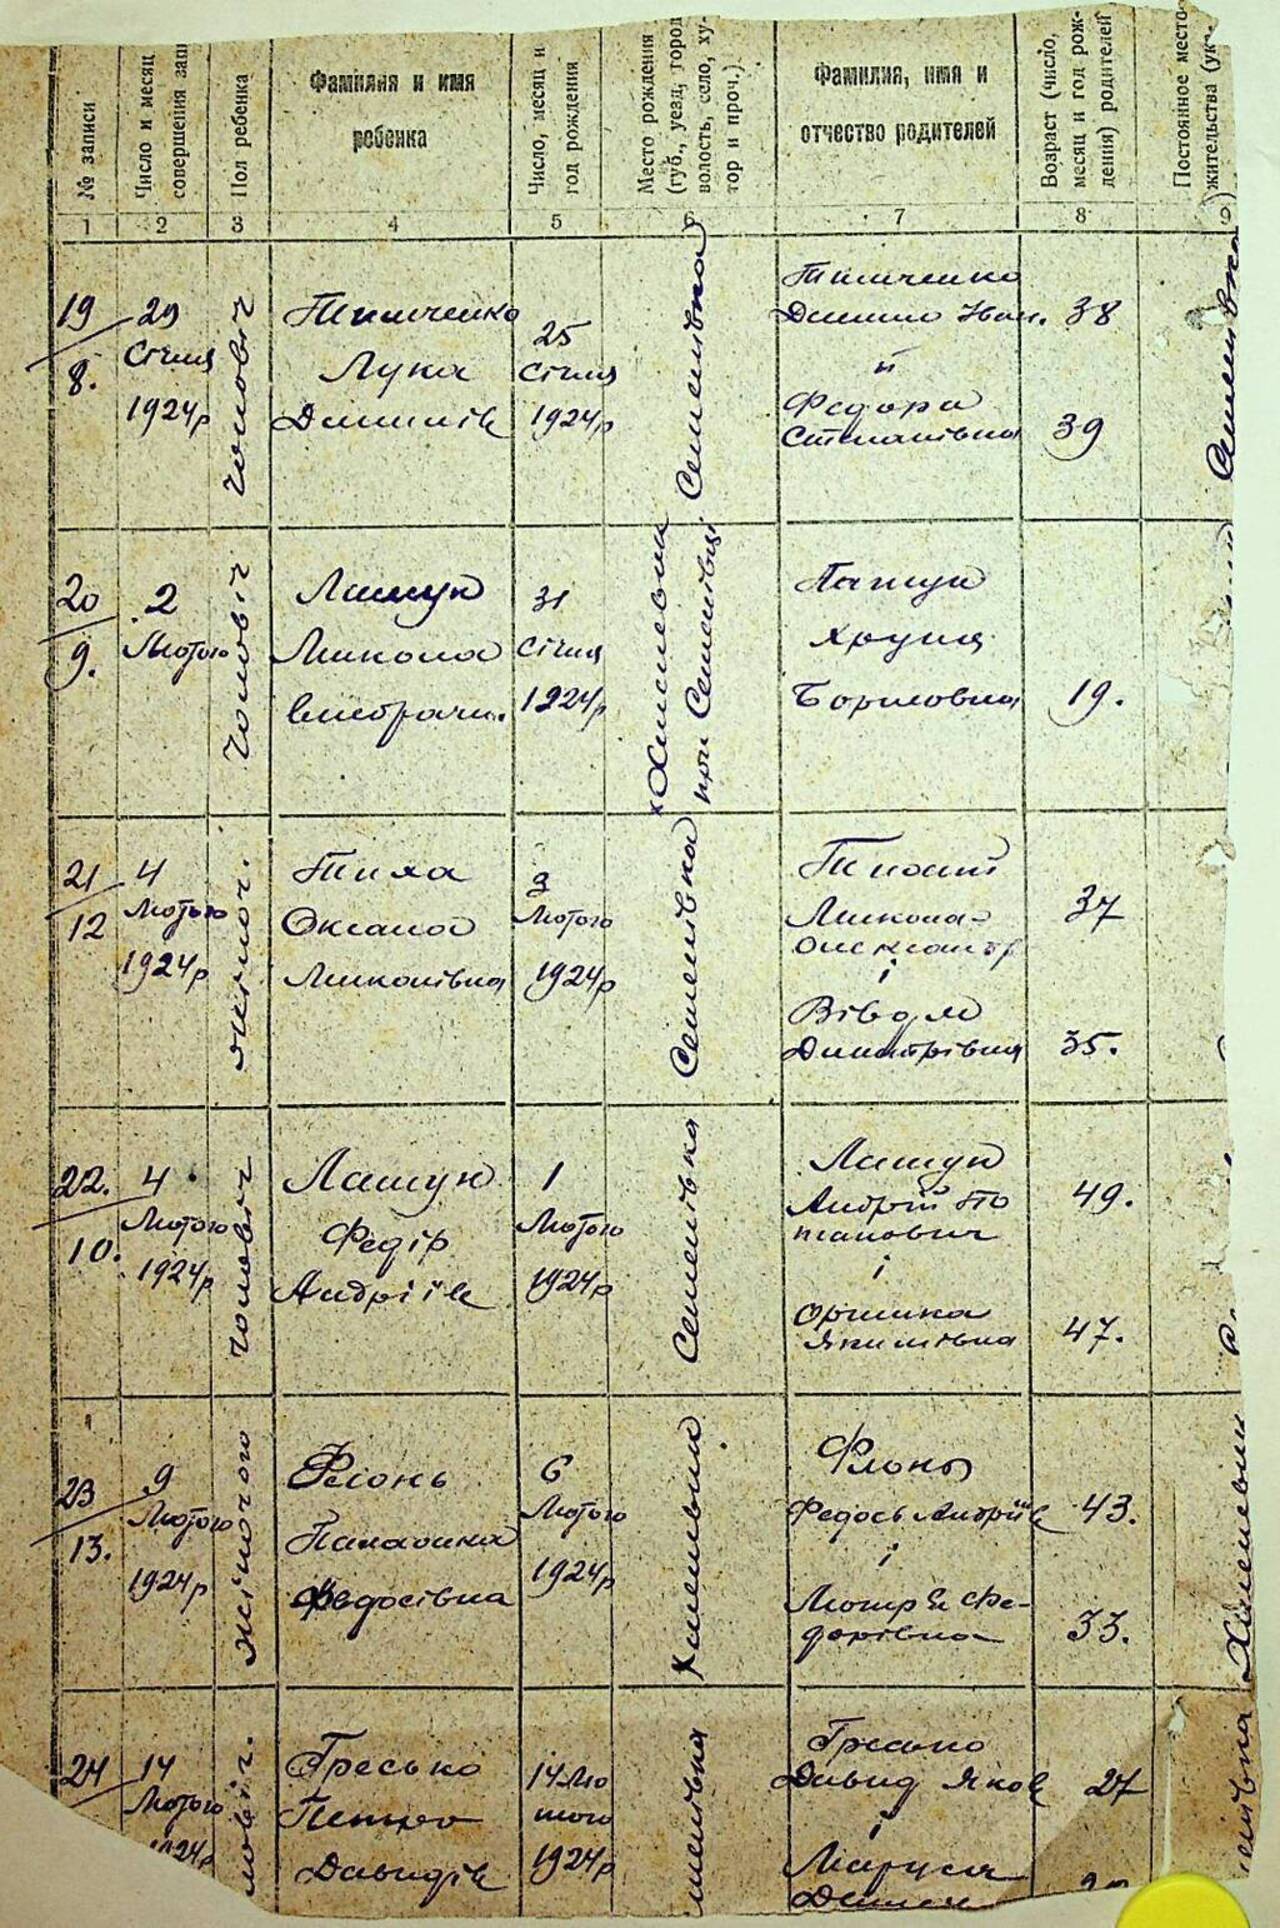 № записи
Число и месяц
совершения запи
Пол ребенка
Фамилия и имя
ребенка
Число, месяц и
год рождения
Место рождения
(губ., уезд, город
волость, село, ху-
тор и проч.).
Фамилия, имя и
отчество родителей
Возраст (число,
месяц и год рож-
дения) родителей
Постоянное место-
жительства (ук
1 2 3 4 5 6 7 8 9
19
8.
29
Січня
1924р
чоловіч
Тимченко
Лука
Данилів
25
Січня
1924р
Семенівка
Тимченко
Данило Іван.
й
Федора
Степанівна
38
39
Семенівка
20
9.
2
Лютого
чоловіч
Лашук
Микола
внебрачн.
31
Січня
1924р
х Хмелевик
при Семенівці
Лашук
Хрущ
Борисовна
19.
21
12
4
Лютого
1924р
жіноч.
Тиха
Оксана
Миколівна
3
Лютого
1924р
Семенівка
Тихий
Микола
Олександр
і
Дмитрівна
37
35.
22.
10.
4
Лютого
1924р
чоловіч
Лашук
Федір
Андріїв
1
Лютого
1924р
Семенівка
Лашук
Андрій По
тапович
і
Оришка
Якимівна
49.
47.
23
13.
9
Лютого
1924р
жіночого
Фльонь
Палажка
Федосівна
6
Лютого
1924р
Хмельвик
Фльонь
Федось Андріїв
і
Мотря Фе-
дорівна
43.
33.
Хмелевик
24
14
Лютого
1924р
ловіч.
Гресько
Петро
Давидів
14 Лю
того
1924р
менівка
Гресько
Давид Яков
і
Маруся
27